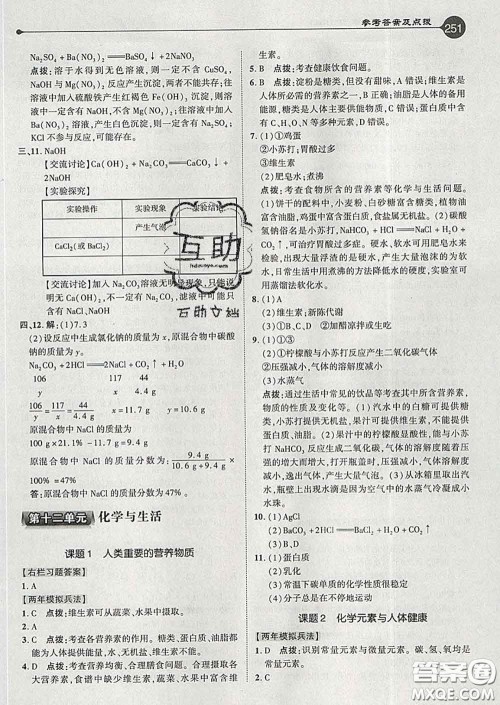 参考答案及点拨
251
Na₂SO₄+Ba(NO₃)₂══BaSO₄↓+2NaNO₃
点拨:溶于水得到无色溶液,则一定不含CuSO₄,
NaOH与Mg(NO₃)₂反应会产生白色沉淀,往
溶液中加入硫酸铁产生红褐色Fe(OH)₃沉淀,则原
溶液中一定含有NaOH,一定不含Mg(NO₃)₂,加入
Ba(NO₃)₂溶液产生白色沉淀,则一定含有Na₂SO₄,
KCl是否存在不能确定。
三、11.NaOH
【交流讨论】Ca(OH)₂+Na₂CO₃══CaCO₃↓+
2NaOH
【实验探究】
实验操作 实验现象 实验结论
产生气泡
CaCl₂(或BaCl₂)
【交流讨论】加入Na₂CO₃溶液无明显现象,只能说
明没有Ca(OH)₂
四、12.解:(1)7.3
(2)设反应中生成氯化钠的质量为y,原混合物中碳酸
钠的质量为x。
Na₂CO₃+2HCl══2NaCl+H₂O+CO₂↑
106 117 44
x y 4.4 g
106/x=44/4.4 g x=10.6 g
117/y=44/4.4 g y=11.7 g
原混合物中NaCl的质量为
100 g×21.1%-11.7 g=9.4 g
原混合物中NaCl的质量分数为:9.4 g/(9.4 g+10.6 g)
×100%=47%。
答:原混合物中NaCl的质量分数为47%。
第十二单元 化学与生活
课题1 人类重要的营养物质
【右栏习题答案】
1.A
【两年模拟兵法】
1.C 点拨:维生素可从蔬菜、水果中摄取。
2.A
3.C 点拨:考查营养素的作用。糖类、蛋白质、油脂都能
为人体活动提供能量。
4.D 点拨:考查营养均衡、合理膳食问题。缺乏蔬菜、水
果的食谱中缺少维生素,从选项中看只有D项富含维
生素。
5.B 点拨:考查健康饮食问题。
6.D 点拨:淀粉是糖类,但没有甜味,A错误;维生素是
人体所必需的营养素之一,但不是越多越好,B错误;
糖类是人体主要供能物质,C错误。
7.(1)①鸡蛋
②小苏打;胃酸过多
③维生素
(2)肥皂水;煮沸
点拨:考查食物所含的营养素等化学与生活问题。
(1)饼干的配料中,小麦粉、白砂糖富含糖类,植物油
富含油脂,鸡蛋中富含蛋白质,食盐属无机盐。(2)碳酸
氢钠俗名是小苏打,可治疗胃酸过多。硬水、软水可用
肥皂水来检验,硬水中产生泡沫少,软水中泡沫多。日
常生活中用煮沸的方法可降低水的硬度,实验室可用
蒸馏法软化硬水。
8.(1)A
(2)维生素;新陈代谢
(3)①B ②加入大量凉拌或炒吃
9.(1)D
(2)①柠檬酸与小苏打反应产生二氧化碳气体
②压强减小,气体的溶解度减小
(3)水蒸气
点拨:通过生活中常见的饮品等考查其中所含营养素、
物质的性质及其变化。(1)汽水中的白糖可提供糖
类,小苏打可提供无机盐、果汁中也提供无机盐,不能提
供蛋白质、油脂。(2)果汁中的柠檬酸与小苏打反应产
生CO₂气体,故打开瓶盖冒气泡。气体的溶解度随压
强的增大而增大,随温度的升高而减小,打开瓶盖时,
压强减小,气体的溶解度减小。(3)从冰箱里取出的汽
水,瓶壁上出现大量的水珠,是空气中的水蒸气遇冷液
化形成的。
10.(1)AgCl
(2)Na₂CO₃+2HCl══2NaCl+H₂O+CO₂↑
11.(1)蛋白质
(2)氮元素
(3)常温下碳单质的化学性质不活泼
(4)分子总是在不停地运动
课题2 化学元素与人体健康
【两年模拟兵法】
1.D 点拨:识别常量元素与微量元素,碳、氢、氧、氮均
是常量元素。
2.C
互助
互助文档
答案圈
MXQE.COM